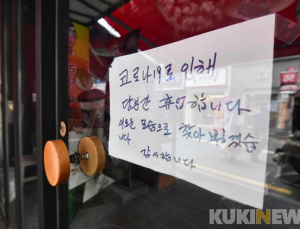 코로나19로 인해
당분간 휴업합니다
새로운 모습으로 찾아뵙겠습
니다
감사합니다
KUKINEW